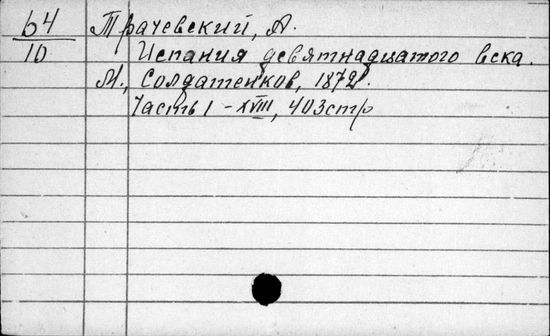 64 Трачевский, А.
10 Испания девятнадцатого века.
М., Солдатенков, 1872.
Часть I - XVIII, 403 стр